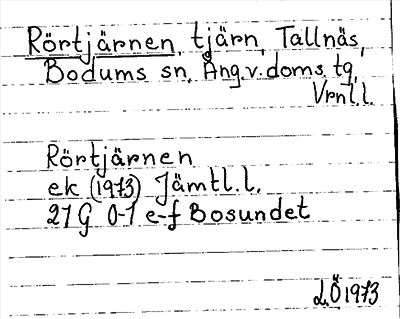 Rörtjärnen, tjärn, Tallnäs,
Bodums sn, Ång.v.doms. tg,
Vrnl.l.
Rörtjärnen
ek (1973) Jämtl.l.
21 G 0-1 e-f Bosundet
L.Ö 1973